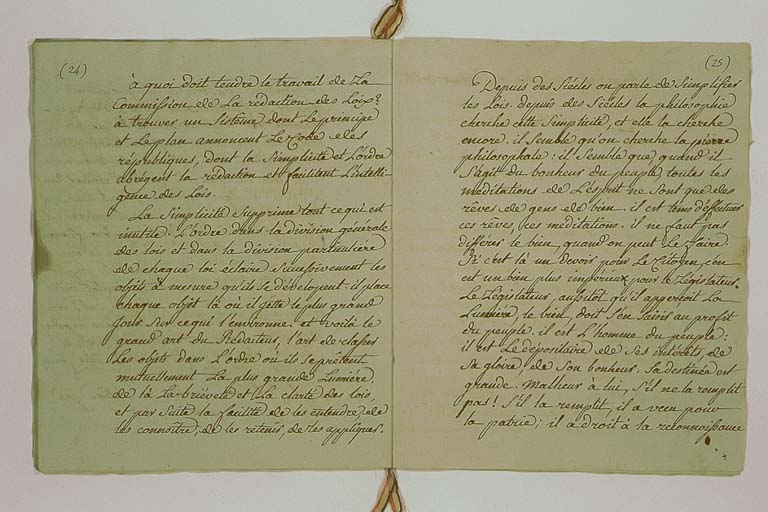 (24)
à quoi doit tendre le travail de La
Commission de La rédaction des Loix?
à trouver un Sistême dont Le principe
et Le plan annoncent Le Code des
républiques, dont la Simplicité et L'ordre
abrègent la rédaction et facilitent L'intelli-
gence des Lois.
La Simplicité Supprime tout ce qui est
inutile. L'ordre dans la division générale
des lois et dans la division particulière
de chaque loi éclaire Successivement les
objets à mesure qu'ils se dévelopent: il place
chaque objet là où il jette le plus grand
Jour Sur ce qui l'environne. et voilà le
grand art du Rédacteur, l'art de classer
Les objets dans L'ordre où ils se prêtent
mutuellement La plus grande Lumière,
de là La brièveté et La clarté des lois,
et par Suite la facilité de les entendre, de
les connoître, de les retenir, de les appliquer.
(25)
Depuis des Siécles on parle de Simplifier
les Lois. depuis des Siécles la philosophie
cherche cette Simplicité, et elle la cherche
encore. il Semble qu'on cherche la pierre
philosophale: il Semble que, quand il
S'agit du bonheur du peuple, toutes les
méditations de L'esprit ne Sont que des
rêves de gens de bien. il est tems d'effectuer
ces rêves, ces méditations. il ne faut pas
différer le bien, quand on peut Le faire.
Si c'est là un Devoir pour Le Citoyen, c'en
est un bien plus impérieux pour le Législateur.
Le Législateur, aussitôt qu'il apperçoit La
Lumière, le bien, doit S'en Saisir au profit
du peuple. il est L'homme du peuple:
il est Le dépositaire de Ses intérêts, de
Sa gloire, de Son bonheur. Sa destinée est
grande. Malheur à lui, S'il ne la remplit
pas! S'il la remplit, il a vécu pour
la patrie; il a droit à la reconnoissance